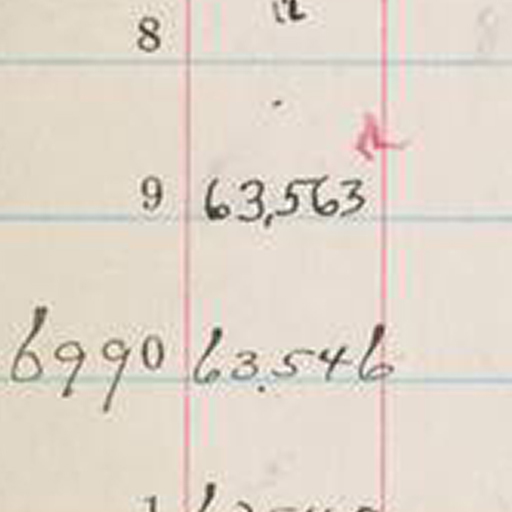 8
9 63,563
6990 63.546
1